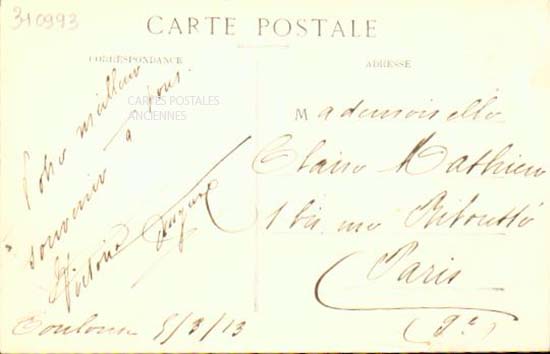 310993
CARTE POSTALE
CORRESPONDANCE
ADRESSE
CARTES POSTALES
ANCIENNES
Votre meilleur
souvenir à vous.
Toulouse 5/3/13
Mademoiselle
Claire Mathieu
1 bis rue Riboutté
Paris